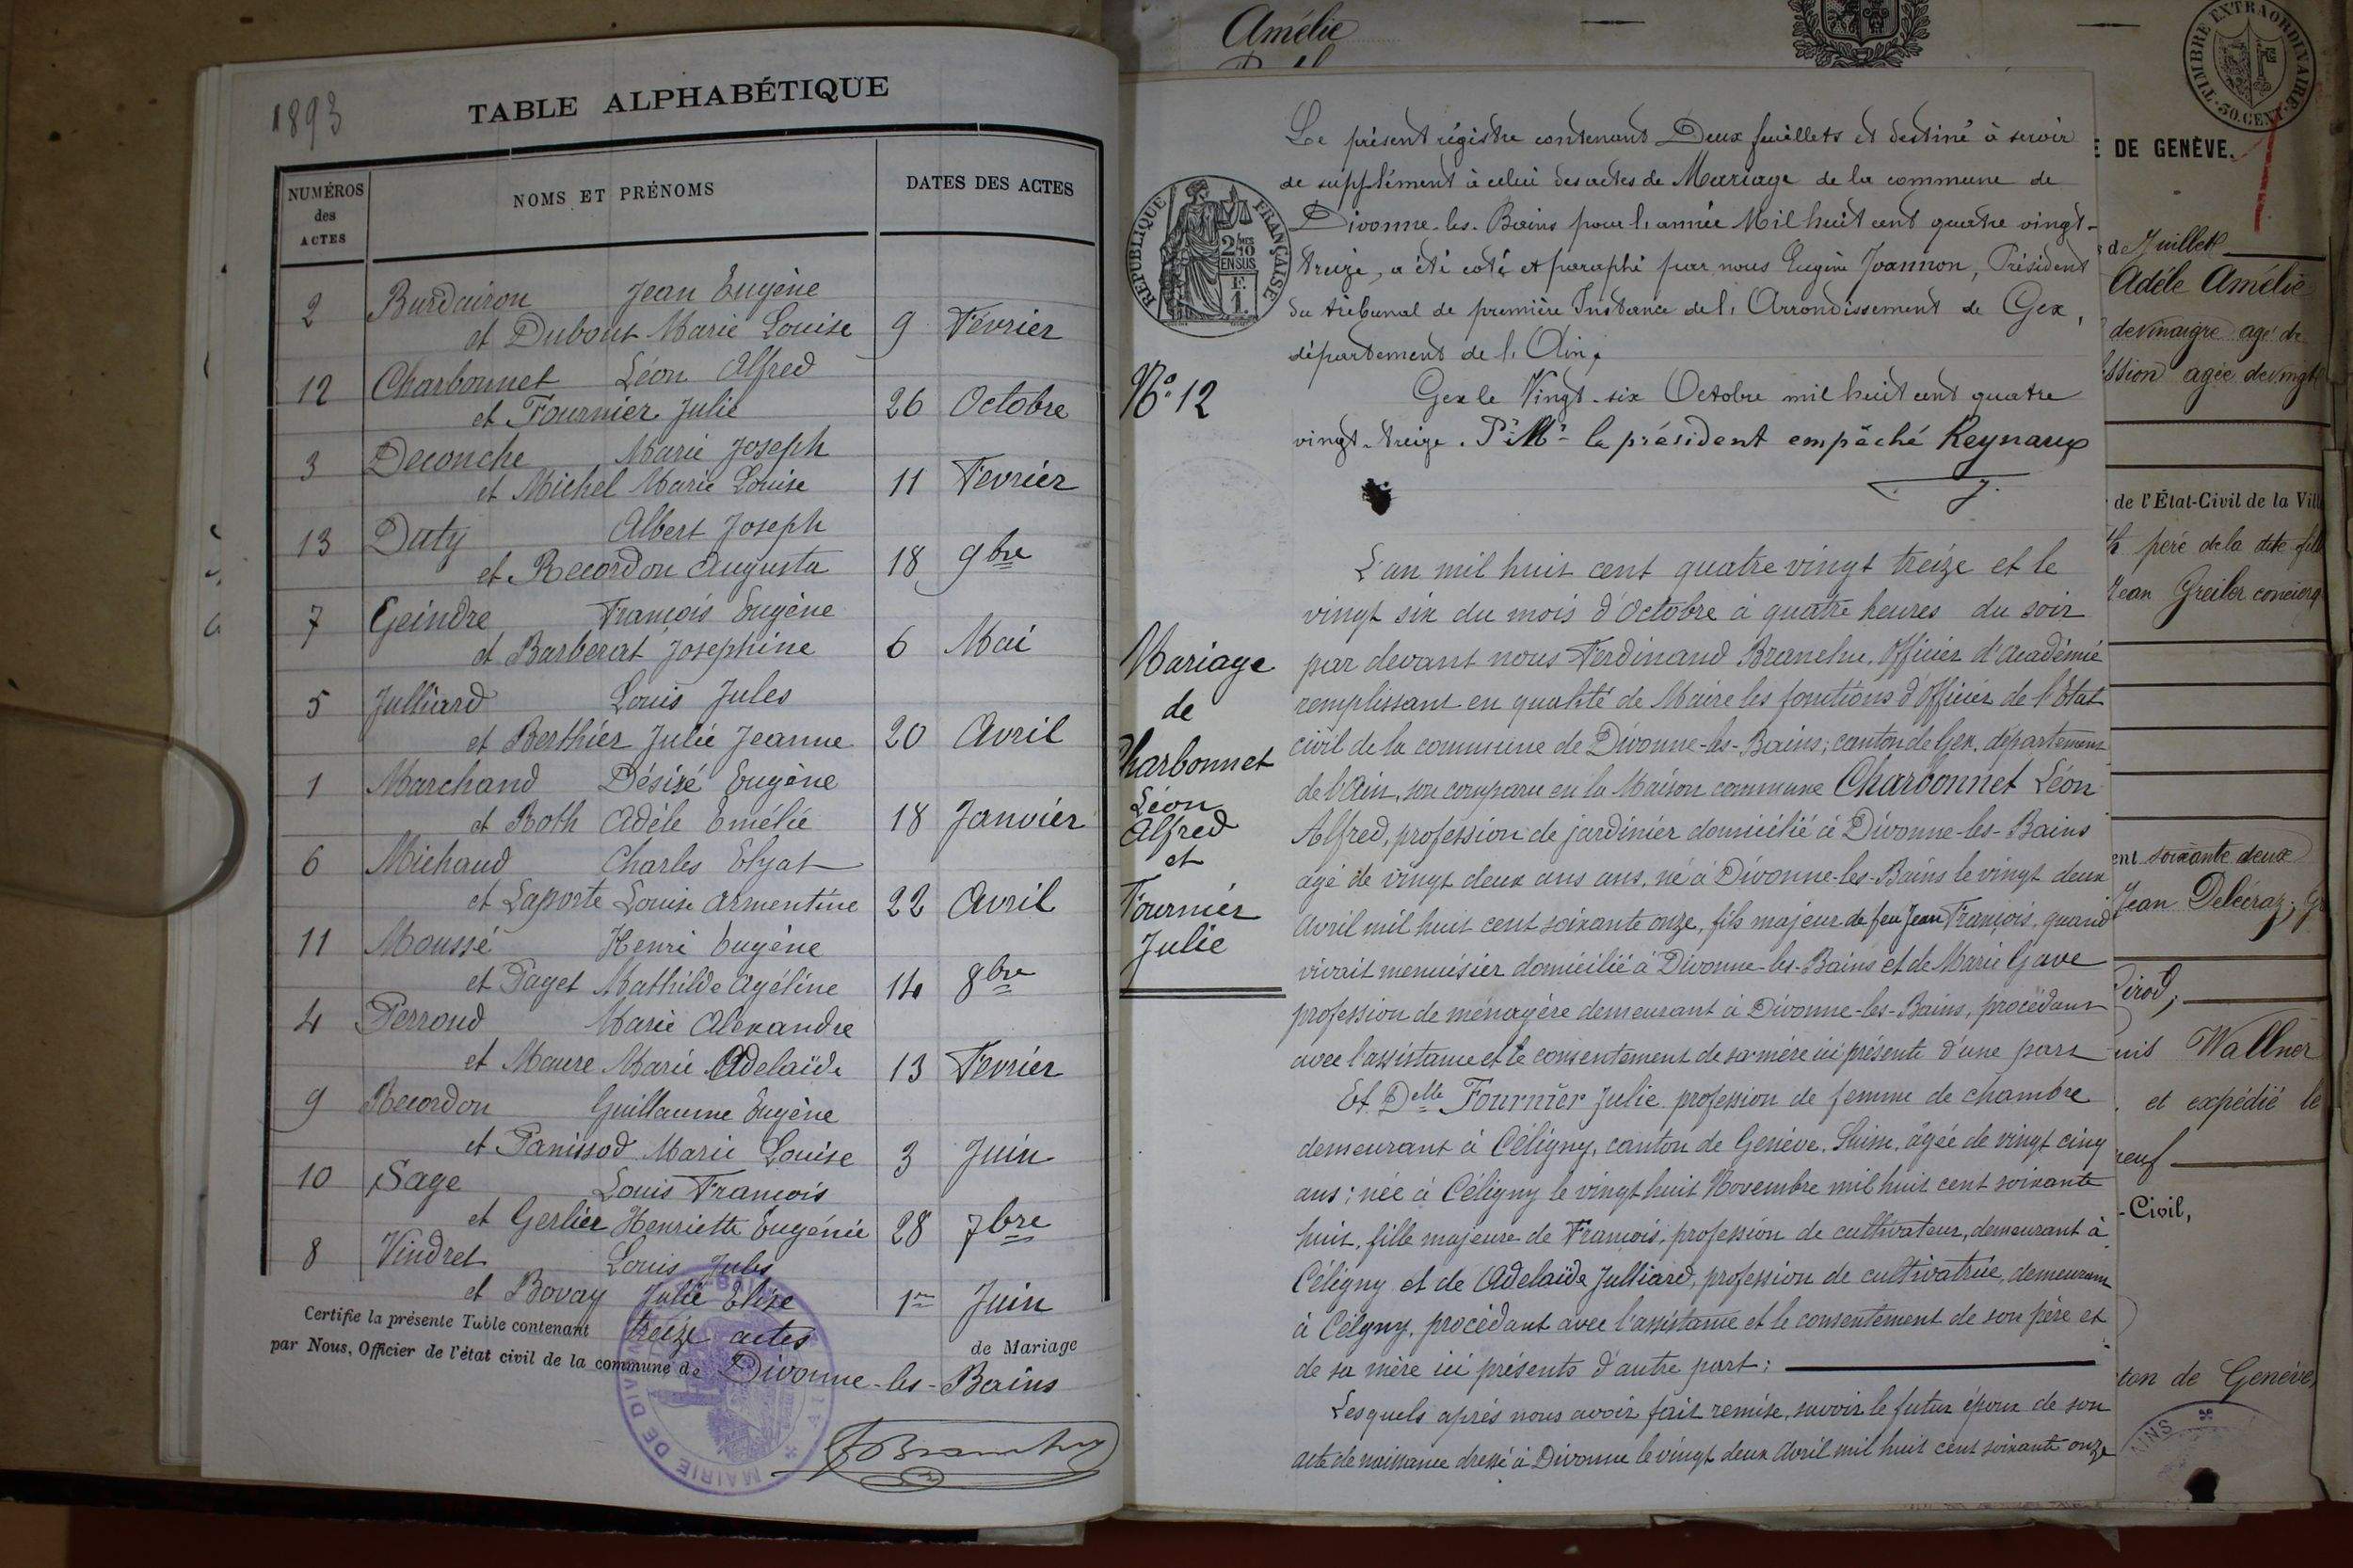 1893
TABLE ALPHABÉTIQUE
NUMÉROS des ACTES
NOMS ET PRÉNOMS
DATES DES ACTES
2 Burdairon Jean Eugène
et Dubout Marie Louise 9 Février
12 Charbonnet Léon Alfred
et Fournier Julie 26 Octobre
3 Deconche Marie Joseph
et Michel Marie Louise 11 Fevrier
13 Duty Albert Joseph
et Recordon Augusta 18 9bre
7 Geindre François Eugène
et Barberat Josephine 6 Mai
5 Julliard Louis Jules
et Berthier Julie Jeanne 20 Avril
1 Marchand Désiré Eugène
et Roth Adèle Emélie 18 Janvier
6 Michaud Charles
et Laporte Louise Armentine 22 Avril
11 Moussé Henri Eugène
et Paget Mathilde Agéline 14 8bre
4 Perroud Marie Alexandre
et Maure Marie Adelaïde 13 Fevrier
9 Recordon Guillaume Eugène
et Panissod Marie Louise 3 Juin
10 Sage Louis François
et Gerlier Henriette Eugénie 28 7bre
8 Vindret Louis Jules
et Bovay Julie Elise 1er Juin
Certifie la présente Table contenant treize actes de Mariage
par Nous, Officier de l'état civil de la commune de Divonne-les-Bains
MAIRIE DE DIVONNE
Amélie
Le présent régistre contenant Deux feuillets et destiné à servir
de supplément à celui des actes de Mariage de la commune de
Divonne-les-Bains pour l'année Mil huit cent quatre vingt-
treize, a été coté et paraphé par nous Eugène Joannon, Président
du tribunal de première Instance de l'Arrondissement de Gex,
département de l'Ain.
Gex le Vingt-six Octobre mil huit cent quatre
vingt-treize. Pr Mr le président empêché Reynaux
RÉPUBLIQUE FRANÇAISE
2/10 EN SUS
F. 1.
No 12
Mariage
de
Charbonnet
Léon
Alfred
et
Fournier
Julie
L'an mil huit cent quatre vingt treize et le
vingt six du mois d'Octobre à quatre heures du soir
par devant nous Ferdinand Branchu, Officier d'Académie
remplissant en qualité de Maire les fonctions d'Officier de l'Etat
civil de la commune de Divonne-les-Bains, canton de Gex, département
de l'Ain, son comparu en la Maison commune Charbonnet Léon
Alfred, profession de jardinier domicilié à Divonne-les-Bains
agé de vingt deux ans ans, né à Divonne-les-Bains le vingt deux
Avril mil huit cent soixante onze, fils majeur de feu Jean François, quand
vivait menuisier domicilié à Divonne-les-Bains et de Marie Gave
profession de ménagère demeurant à Divonne-les-Bains, procédant
avec l'assistance et le consentement de sa mère ici présente d'une part
Et Delle Fournier Julie profession de femme de chambre
demeurant à Céligny, canton de Genève, Suisse, âgée de vingt cinq
ans; née à Céligny le vingt huit Novembre mil huit cent soixante
huit, fille majeure de François, profession de cultivateur, demeurant à
Céligny et de Adelaïde Julliard, profession de cultivatrice, demeurant
à Céligny, procédant avec l'assistance et le consentement de son père et
de sa mère ici présents d'autre part;
Lesquels après nous avoir fait remise, savoir le futur époux de son
acte de naissance dressé à Divonne le vingt deux Avril mil huit cent soixante onze
TIMBRE EXTRAORDINAIRE
50. CENT.
DE GENÈVE.
de Juillet
Adèle Amélie
de vinaigre agé de
agée de vingt
de l'État-Civil de la Vill
père de la dite fille
Jean Greiler concierg
ent soixante deux
Jean Delécraz,
Wallner
et expédié le
-Civil,
ton de Genève,